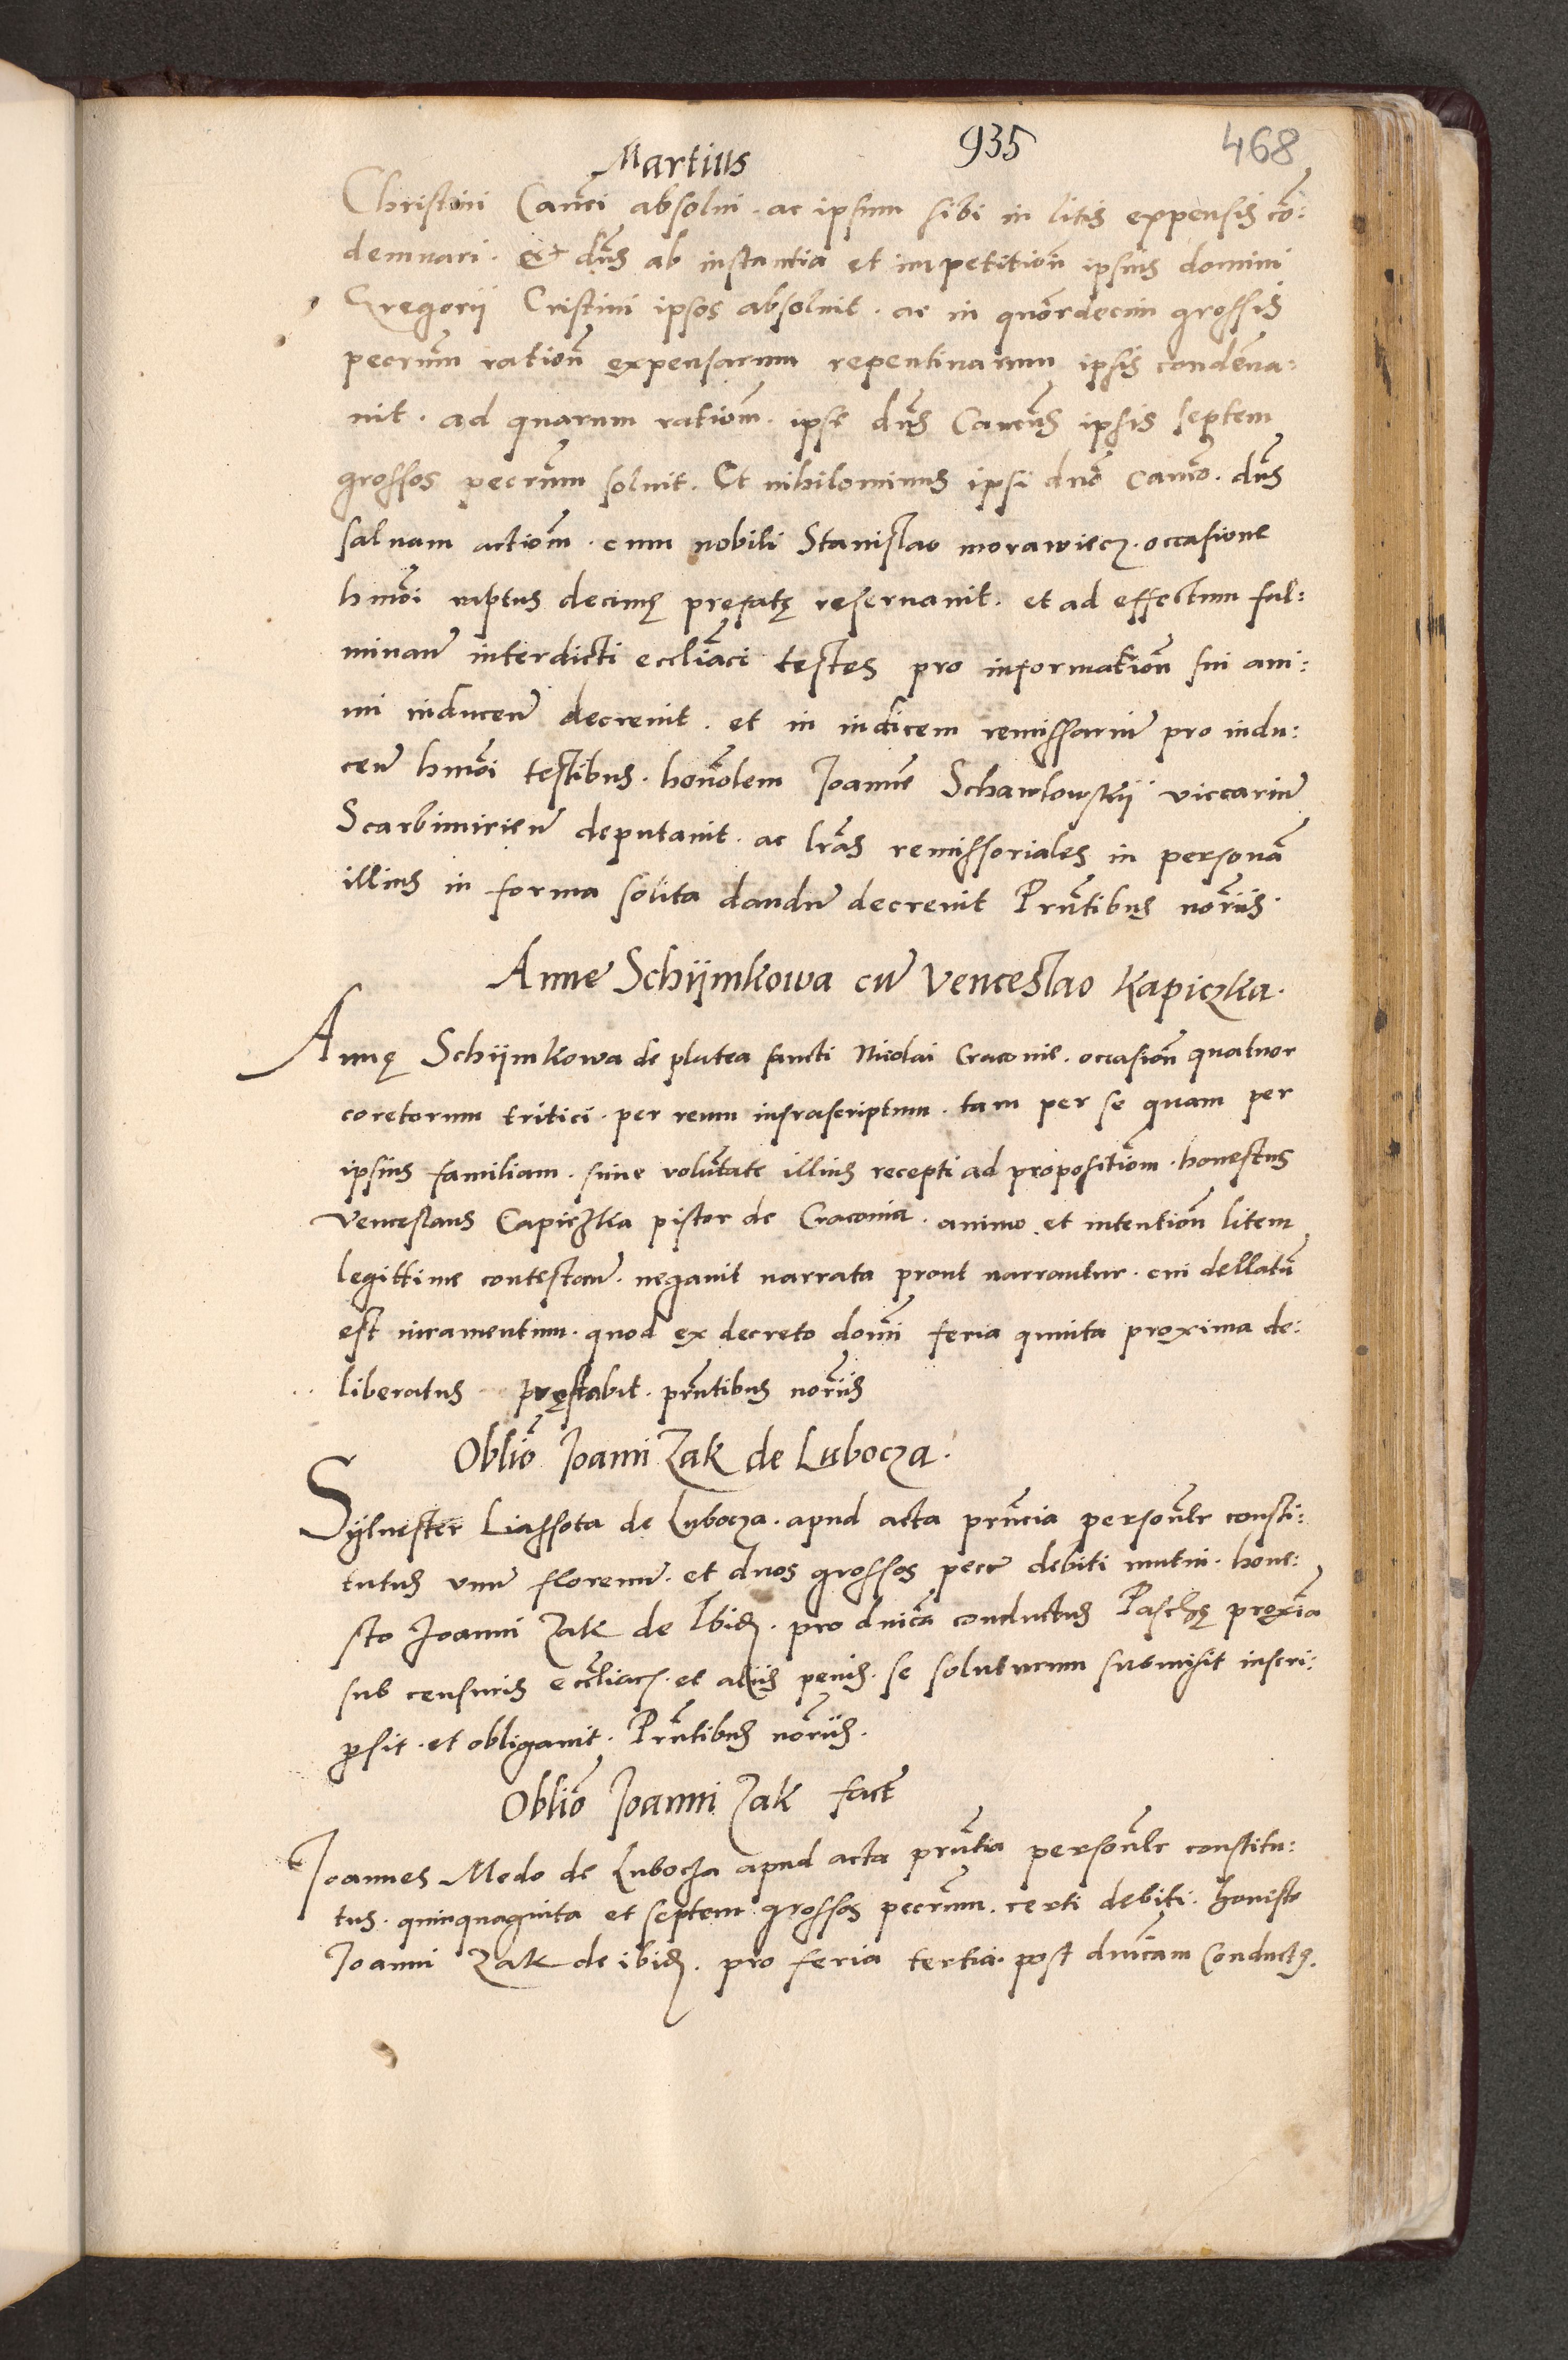 Martius 935 468
Christini Canci absolui . ac ipsum sibi in litis expensis cō:
demnari . et dns ab instantia et impetition ipsius domini
Gregorii Cristini ipsos absoluit . ac in quordecim grossis
pecrum ration expensarum repentinarum ipsis condena:
uit . ad quarum rationem . ipse dns Cancus ipsis septem
grossos pecrum soluit . Et nihilominus ipsi dno Canco . dns
saluam actionem . cum nobili Stanislao morawiecz . occasione
hmoi decimę prefatę reseruauit . et ad effectum ful:
minan interdicti eccliaci testes pro information sui ani:
mi inducen decreuit . et in iudicem remissarium pro indu:
cen hmoi testibus . honolem Joannem Schawlowskij viccarium
Scarbimirien deputauit . ac lras remissoriales in personā
illius in forma solita dandum decreuit Prntibus noriis .
Anne Schijmkowa cum Venceslao Kapiczka .
Annę Schijmkowa de platea sancti Nicolai Cracouie . occasion quatuor
coretorum tritici . per reum infrascriptum . tam per se quam per
ipsius familiam . sine voluntate illius recepti ad propositiom . honestus
Venceslaus Capiczka pistor de Cracouia . animo et intention litem
legittime contestan . negauit narrata prout narrantur . cui dellatum
est iuramentum . quod ex decreto domi feria quinta proxima de:
liberatus pręstabit . prntibus noriis
Oblio Joanni Zak de Lubocza .
Syluester Liassota de Lubocza . apud acta prncia personlr consti:
tutus vnum florenum . et duos grossos pecc debiti mutui . hone:
sto Joanni Zak de Ibid . pro dnica conductus Paschę proxia
sub censuris eccliacs . et aliis penis . se soluturum submisit inscri:
psit . et obligauit . Prntibus noriis .
Oblio Joanni Zak fact
Joannes Modo de Lubocza apud acta prntia personlr constitu:
tus . quinquaginta et septem grossos pecrum . certi debiti . honesto
Joanni Zak de ibid . pro feria tertia . post dnicam Conductus .